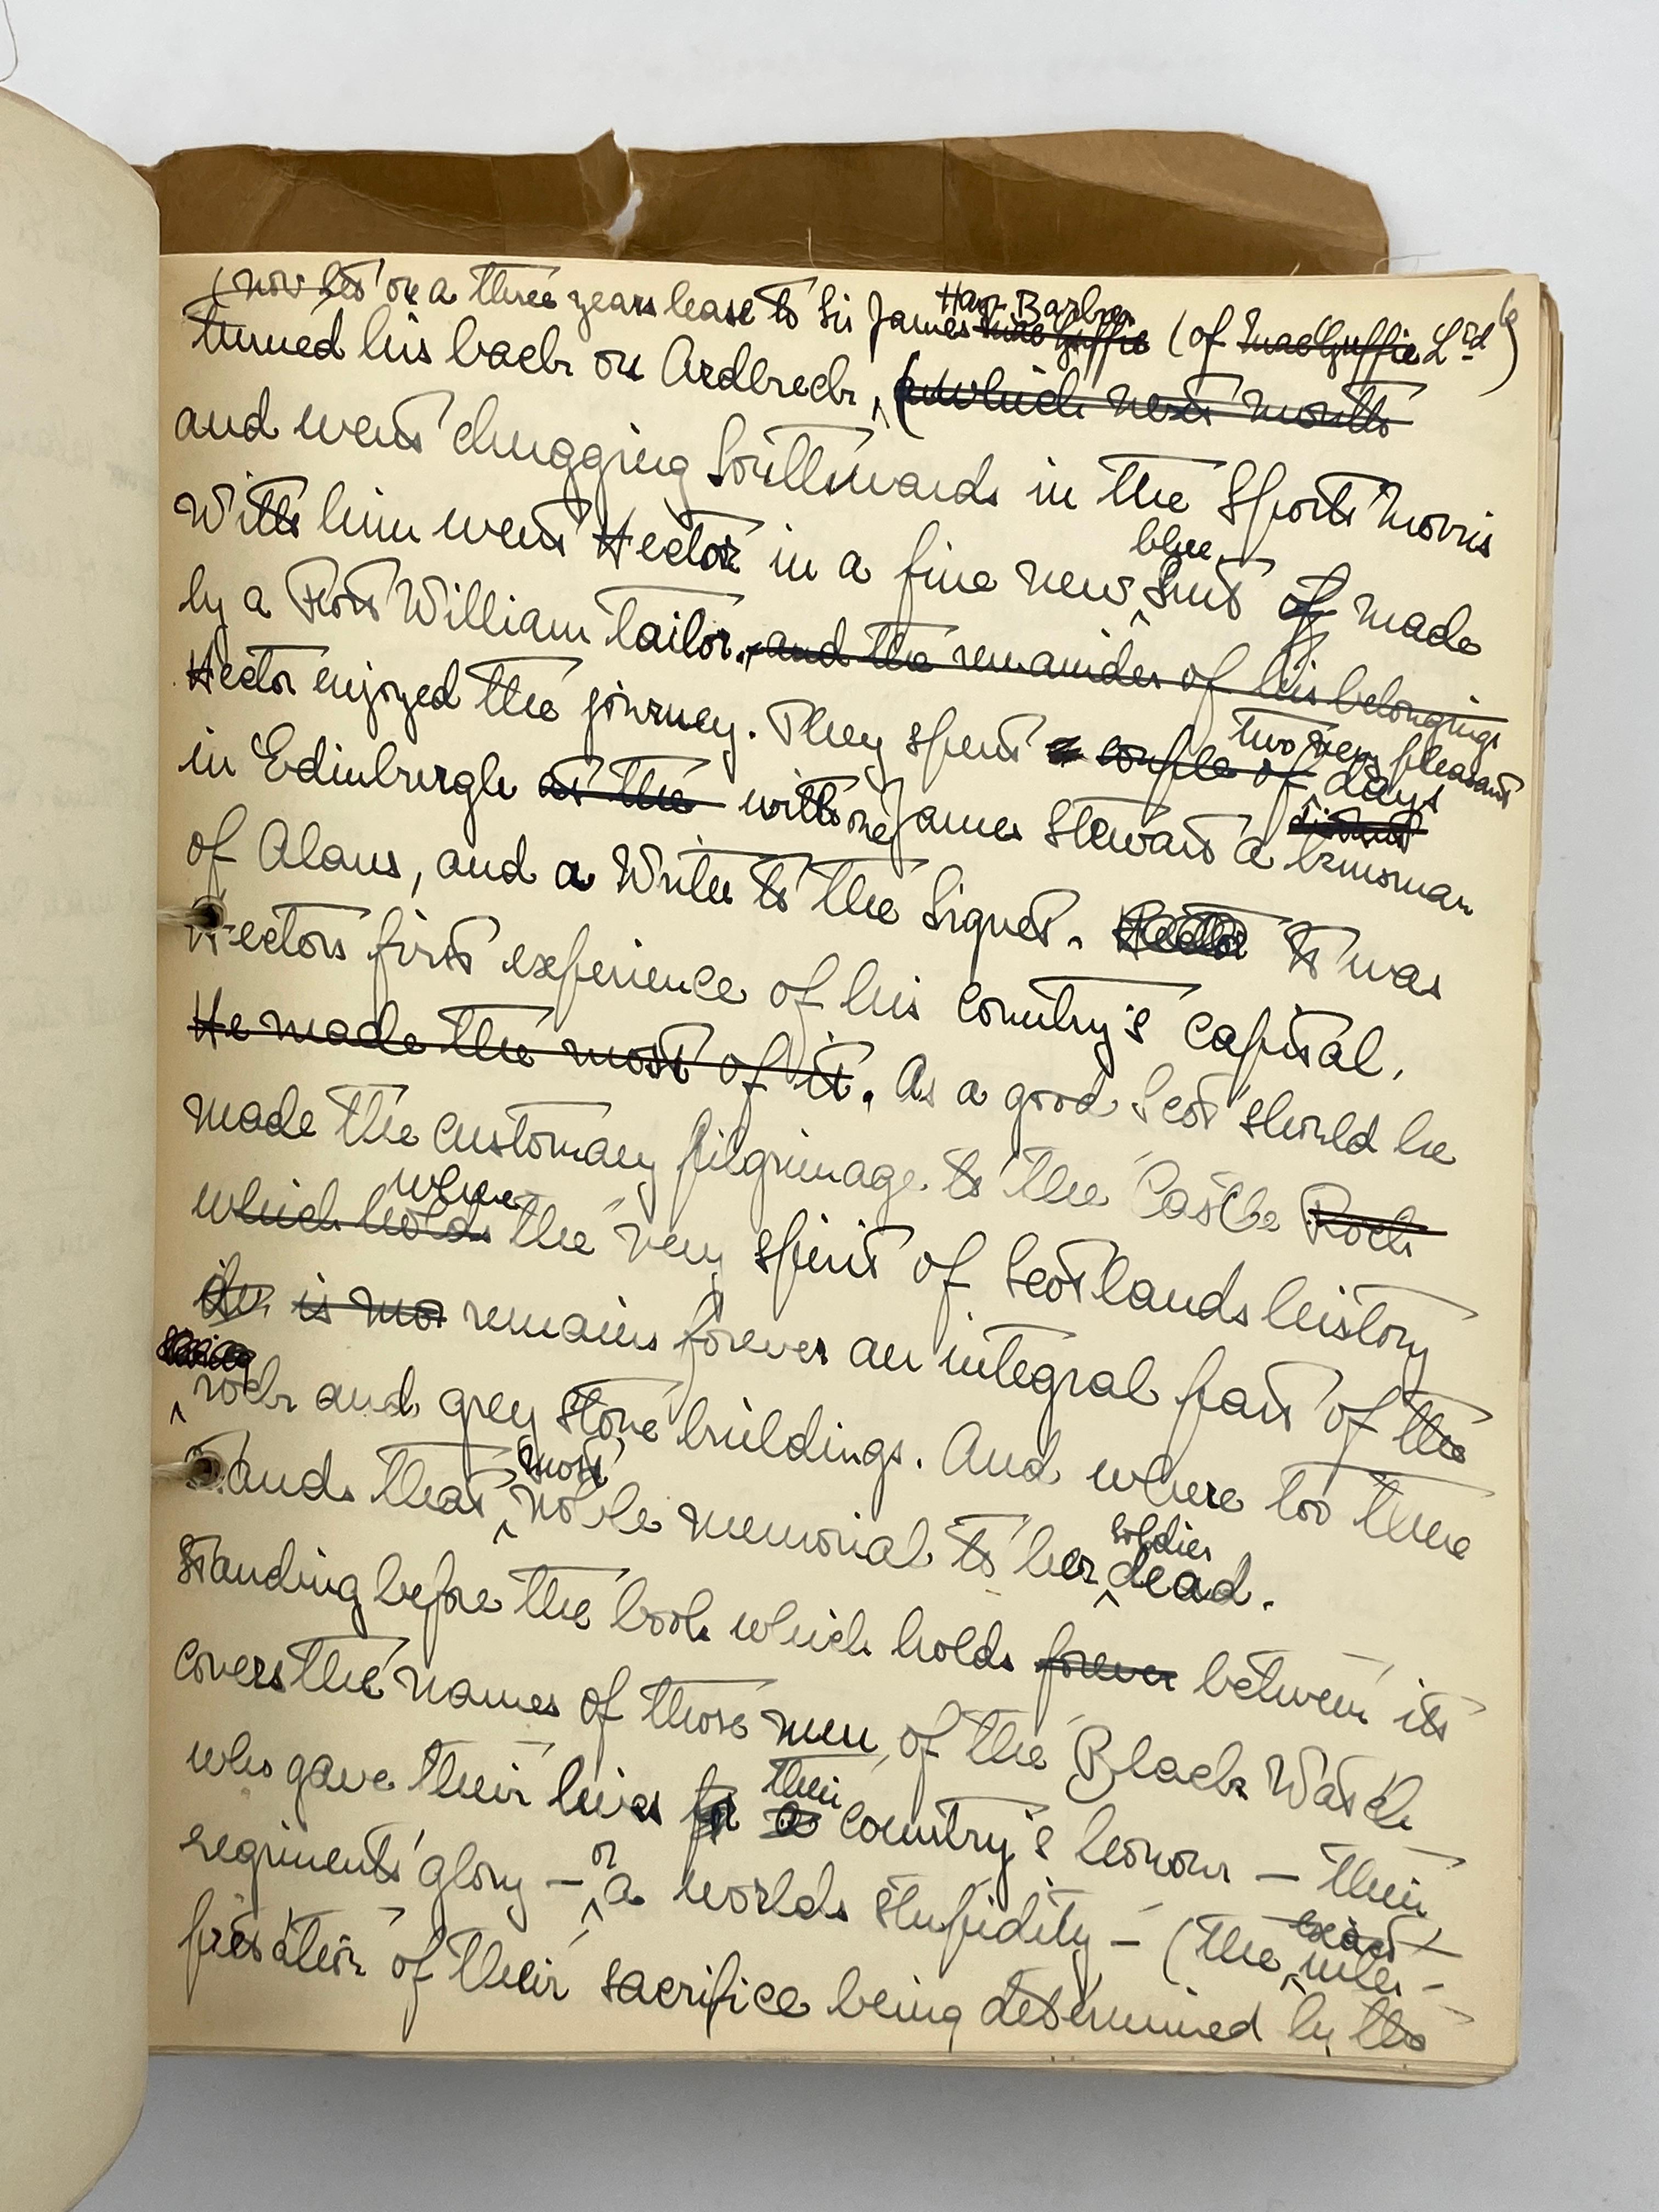 (now let on a three years lease to Sir James Hay-Barbour MacGuffie (of MacGuffie Ltd)
turned his back on Ardbreck, (which next month
and went chugging Southwards in the Sports Morris
With him went Hector in a fine new blue Suit of made
by a Fort William tailor. and the remainder of his belongings
Hector enjoyed the journey. They spent a couple of two very pleasant days
in Edinburgh at the with one James Stewart a distant kinsman
of Alans, and a Writer to the Signet. Hector It was
Hectors first experience of his country's capital.
He made the most of it. As a good Scot should he
made the customary pilgrimage to the Castle Rock
which holds where the very spirit of Scotlands history
is remains forever an integral part of the
rock and grey stone buildings. And where too there
stands that most noble memorial to her soldier dead.
Standing before the book which holds forever between its
covers the names of those men of the Black Watch
who gave their lives for a their country's honour — their
regiments' glory — or a worlds stupidity — (the exact inter-
pretation of their sacrifice being determined by the